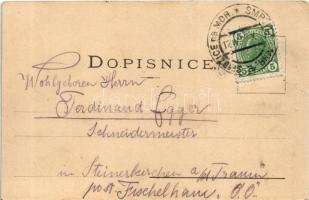 DOPISNICE
Wohlgeboren Herrn
Ferdinand Egger
Schneidermeister
in Steinerkirchen a/d Traun
post Fischelham, O.Ö.
5 5